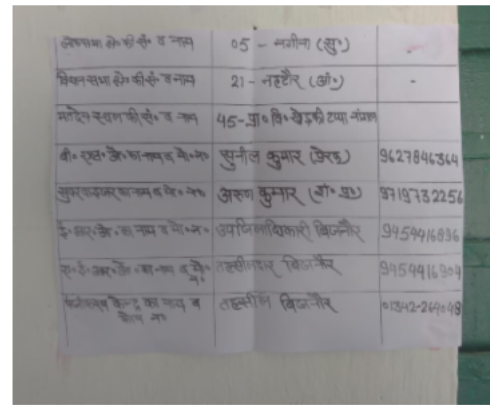 लोकसभा क्षे० की सं० व नाम 05 - नगीना (सु०) -
विधान सभा क्षे० की सं० व नाम 21 - नहटौर (अ०) -
मतदेय स्थल की सं० व नाम 45-प्रा० वि० खेड़की टप्पा नंगल
बी० एल० ओ० का नाम व मो० न० सुनील कुमार (प्रेरक) 9627846364
सुपरवाइजर का नाम व मो० न० अरुण कुमार (ग्रा० पं०) 9719732256
ई० आर० ओ० का नाम व मो० न० उपजिलाधिकारी बिजनौर 9454416896
ए० ई० आर० ओ० का नाम व मो० तहसीलदार बिजनौर 9454416904
न०
केन्द्र का नाम व तहसील बिजनौर 01342-264048
न०